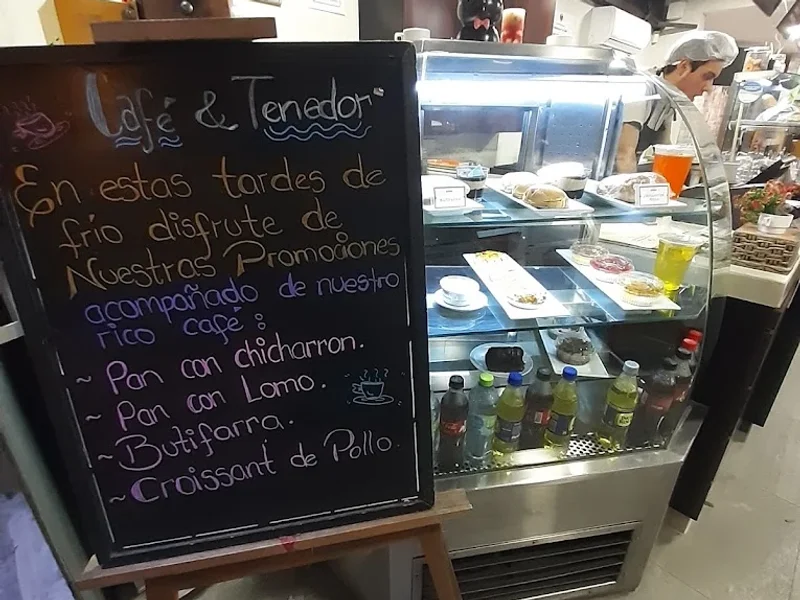 Café & Tenedor
En estas tardes de
frío disfrute de
Nuestras Promociones
acompañado de nuestro
rico café:
~ Pan con chicharron.
~ Pan con Lomo.
~ Butifarra.
~ Croissant de Pollo.